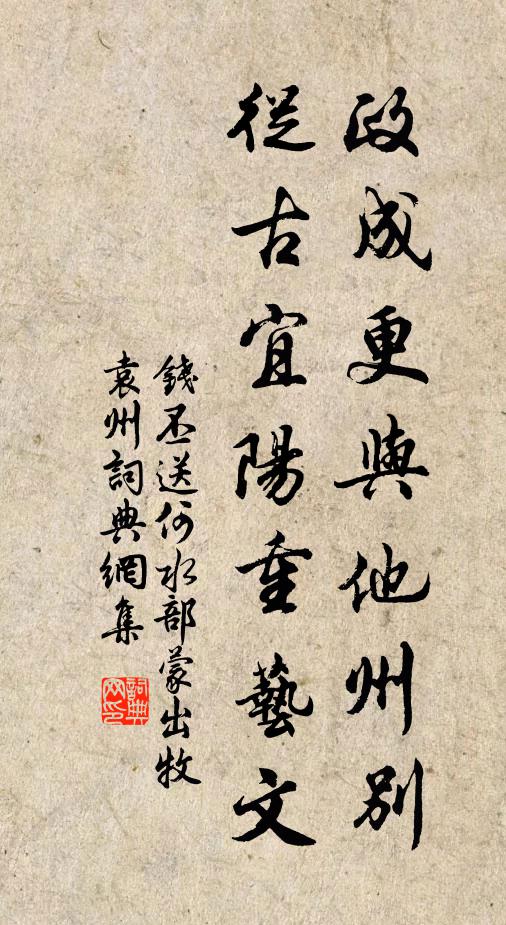 政成更與他州別
從古宜陽重藝文
錢丕送何水部蒙出牧
袁州詞典網集
詞典
网印